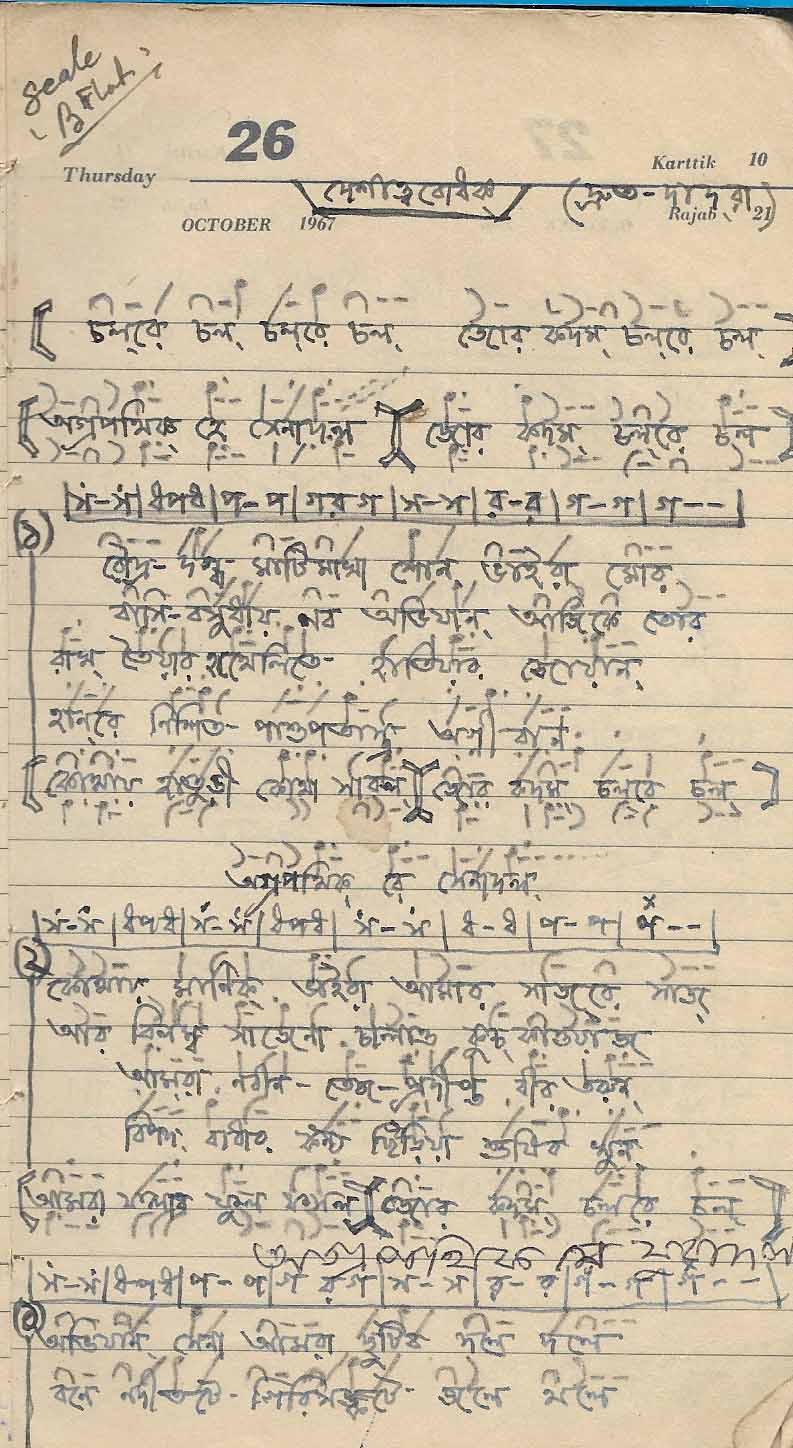 Scale
B Flat
26
Thursday
Karttik 10
দেশাত্ববোধক (দ্রুত-দাদ্‌রা)
OCTOBER 1967
Rajab 21
চল্‌রে চল্‌ চল্‌রে চল্‌ জোর কদম্‌ চল্‌রে চল্‌
অগ্রপথিক্‌ হে সেনাদল জোর কদম্‌ চল্‌রে চল
|র্স-র্স|ধপধ|প-প|গরগ|স-স|র-র|গ-গ|গ--|
১) রৌদ্র-দগ্ধ মাটিমাখা শোন্‌ ভাইরা মোর
বাসি-বসুধায় নব অভিযান্‌ আজিকে তোর
রাখ্‌ তৈয়ার হাথেলিতে হাতিয়ার জোয়ান্‌
হান্‌রে নিশিত-পাশুপতাস্ত্র অগ্নী বান
কোথায় হাতুড়ী কোথা সাবল জোর কদম চল্‌রে চল্‌
অগ্রপথিক্‌ রে সেনাদল্‌
|র্স-র্স|ধপধ|র্স-র্স|ধপধ|র্স-র্স|ধ-ধ|প-প|প--|
২) কোথায় মানিক্‌ ভাইরা আমার সাজ্‌রে সাজ্‌
আর বিলম্ব সাজেনা চালাও কুচ্‌কাওয়াজ্‌
আমরা নবীন-তেজ-প্রদীপ্ত বীর তরুন্‌
বিপদ্‌ বাধার কন্ঠ ছিঁড়িয়া শুষিব খুন
আমরা ফলাব ফুল ফসল জোর কদম্‌ চল্‌রে চল্‌
অগ্রপথিক রে
|র্স-র্স|ধপধ|প-প|গরগ|স-স|র-র|গ-গ|গ--|
৩) অভিযান্‌ সেনা আমরা ছুটিব দলে দলে
বনে নদীতটে-গিরিসঙ্কটে-জলে থলে